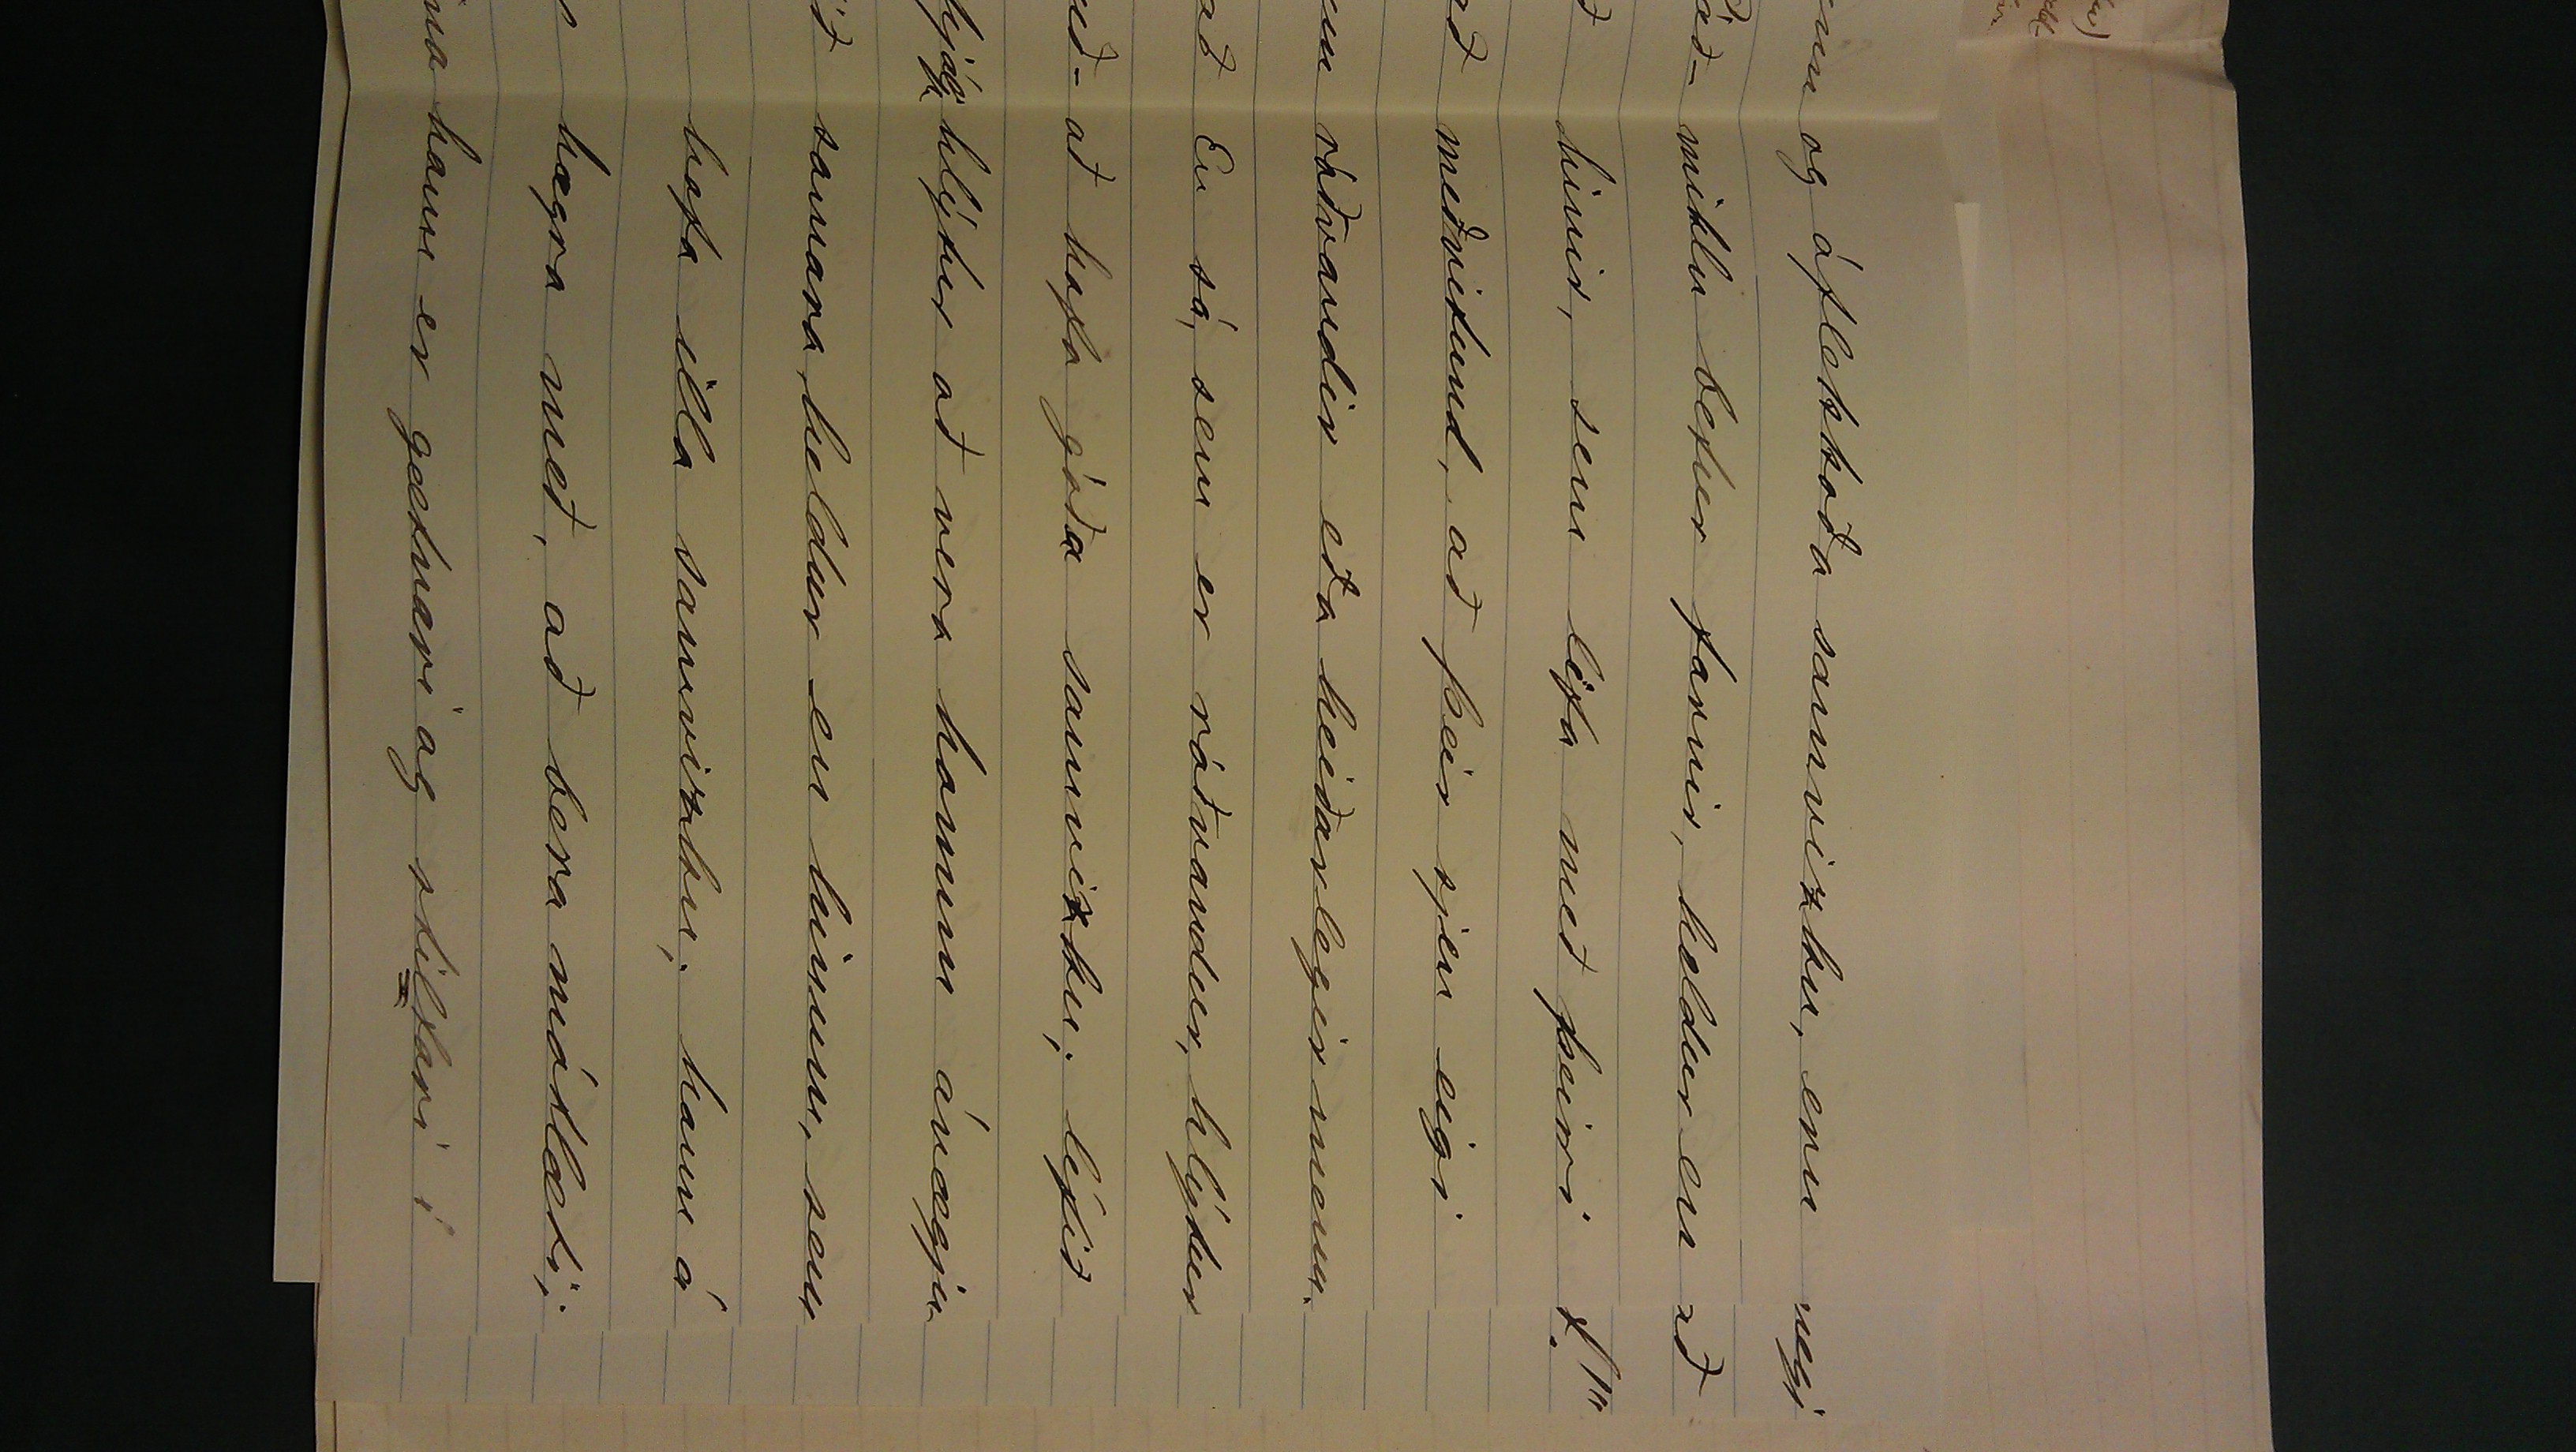 og óflekkaða samvizku, enu
miklu betur farnir, heldur en að
hinir, sem lifa með þeirri
meðvitund, að þeir sjeu eigi
ráðvandir eða heiðarlegir menn.
að En sá, sem er ráðvandur, hlýtur
að hafa góða samvizku; lífið
hlýtur að vera honum ánægju-
samara, heldur en hinum, sem
hafa illa samvizku; hann á
hægra með, að bera mótlæti;
hann er gætnari og stilltari í